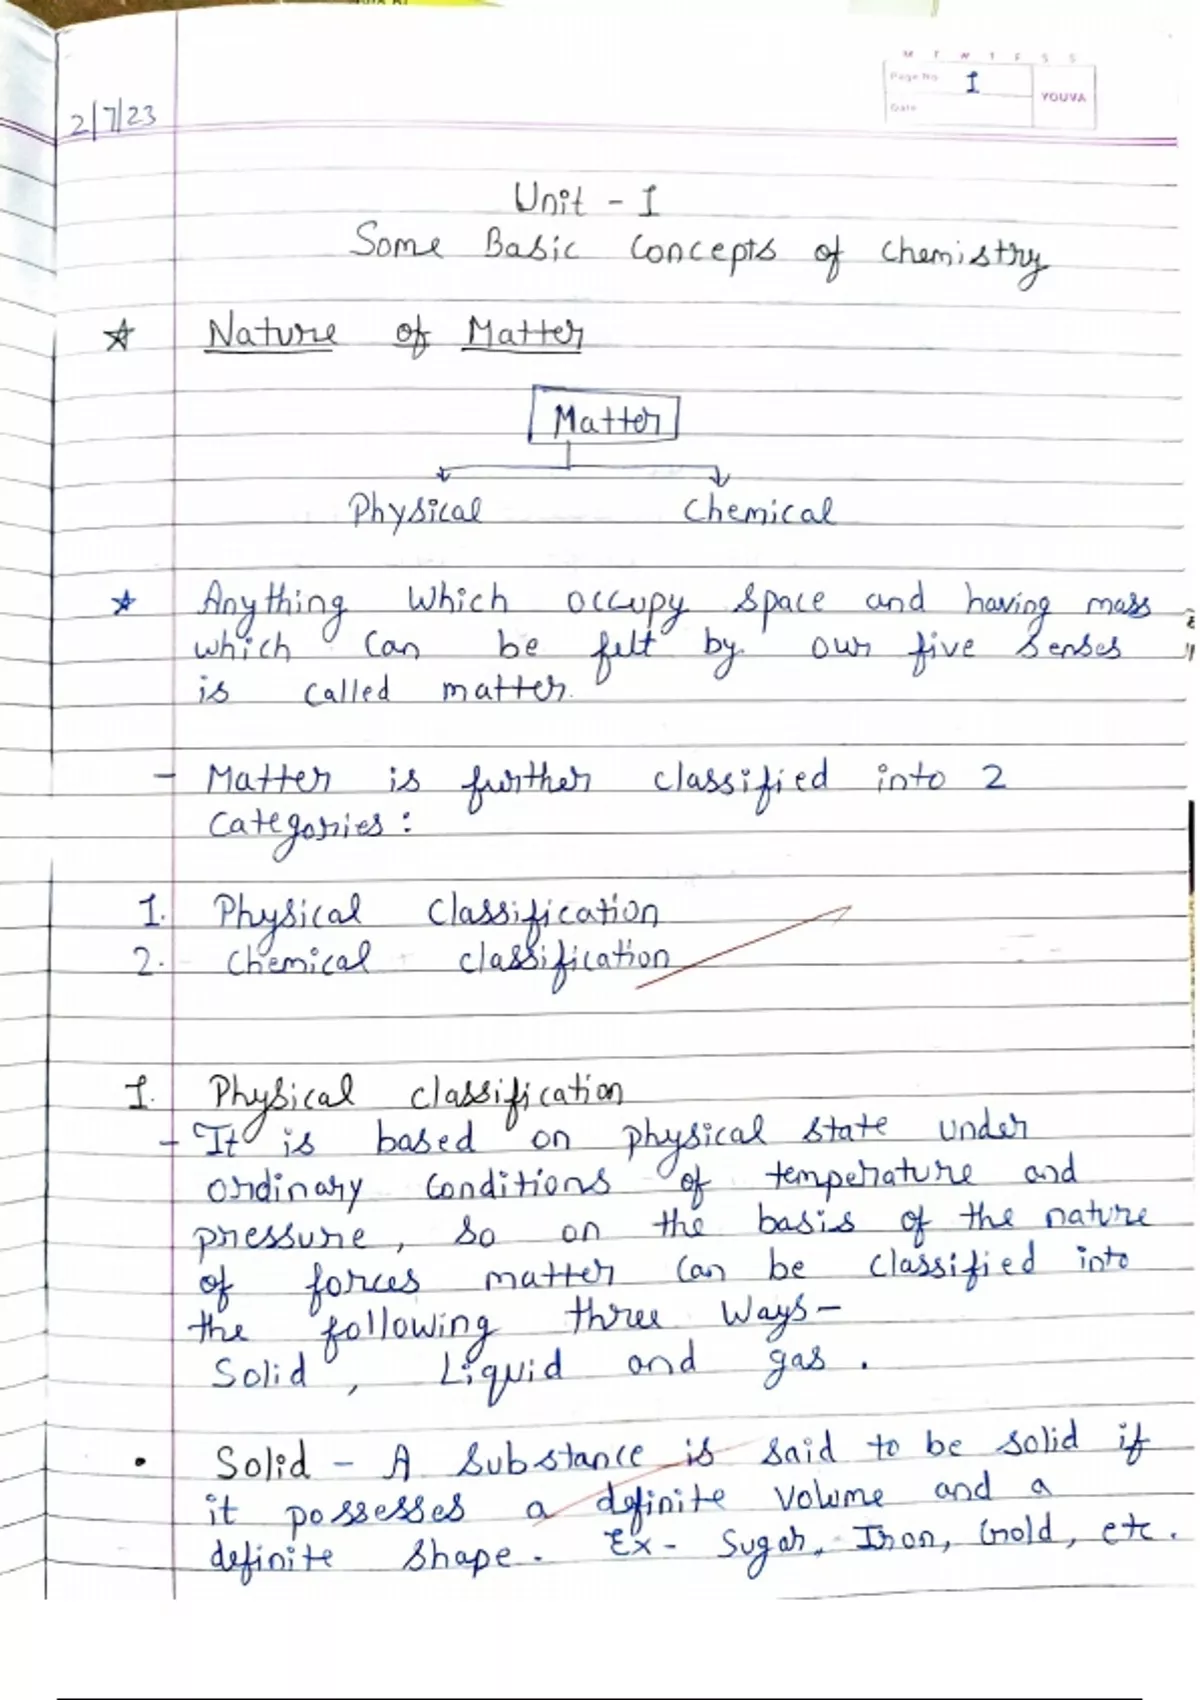 M T W T F S S
Page No. 1
YOUVA
Date
2/7/23
Unit - I
Some Basic Concepts of Chemistry
☆ Nature of Matter
Matter
Physical Chemical
☆ Anything which occupy space and having mass
which can be felt by our five senses
is called matter.
- Matter is further classified into 2
categories:
1. Physical Classification
2. Chemical classification
1. Physical classification
- It is based on physical state under
ordinary conditions of temperature and
pressure, so on the basis of the nature
of forces matter can be classified into
the following three ways-
Solid, Liquid and gas.
• Solid - A substance is said to be solid if
it possesses a definite volume and a
definite shape. Ex- Sugar, Iron, Gold, etc.